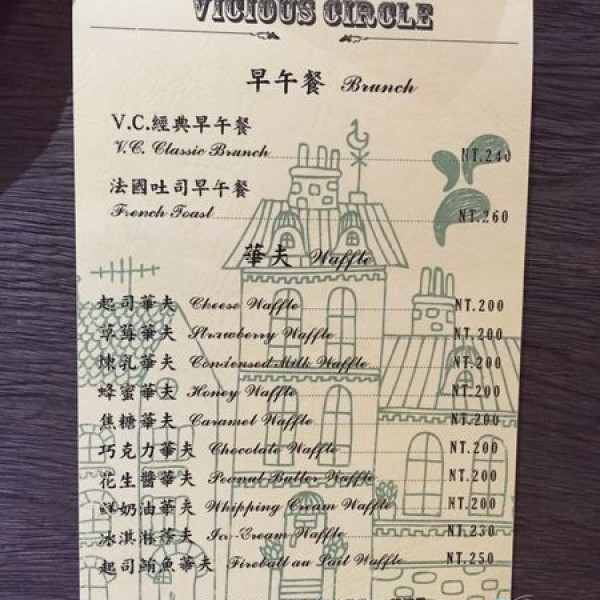 VICIOUS CIRCLE
早午餐 Brunch
V.C.經典早午餐
V.C. Classic Brunch NT.240
法國吐司早午餐
French Toast NT.260
華夫 Waffle
起司華夫 Cheese Waffle NT.200
草莓華夫 Strawberry Waffle NT.200
煉乳華夫 Condensed Milk Waffle NT.200
蜂蜜華夫 Honey Waffle NT.200
焦糖華夫 Caramel Waffle NT.200
巧克力華夫 Chocolate Waffle NT.200
花生醬華夫 Peanut Butter Waffle NT.200
鮮奶油華夫 Whipping Cream Waffle NT.200
冰淇淋華夫 Ice-Cream Waffle NT.230
起司鮪魚華夫 Fireball au Lait Waffle NT.250